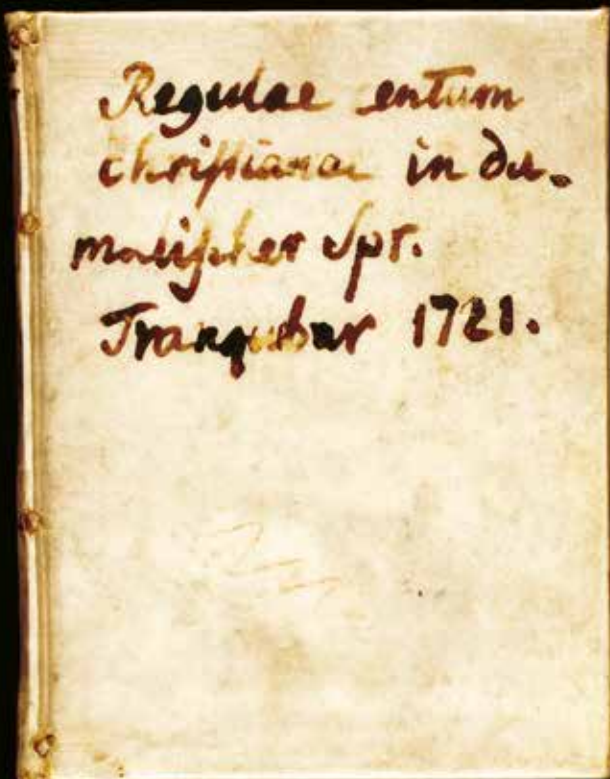 Regulae entum
christianae in da-
malischer Spr.
Tranquebar 1721.